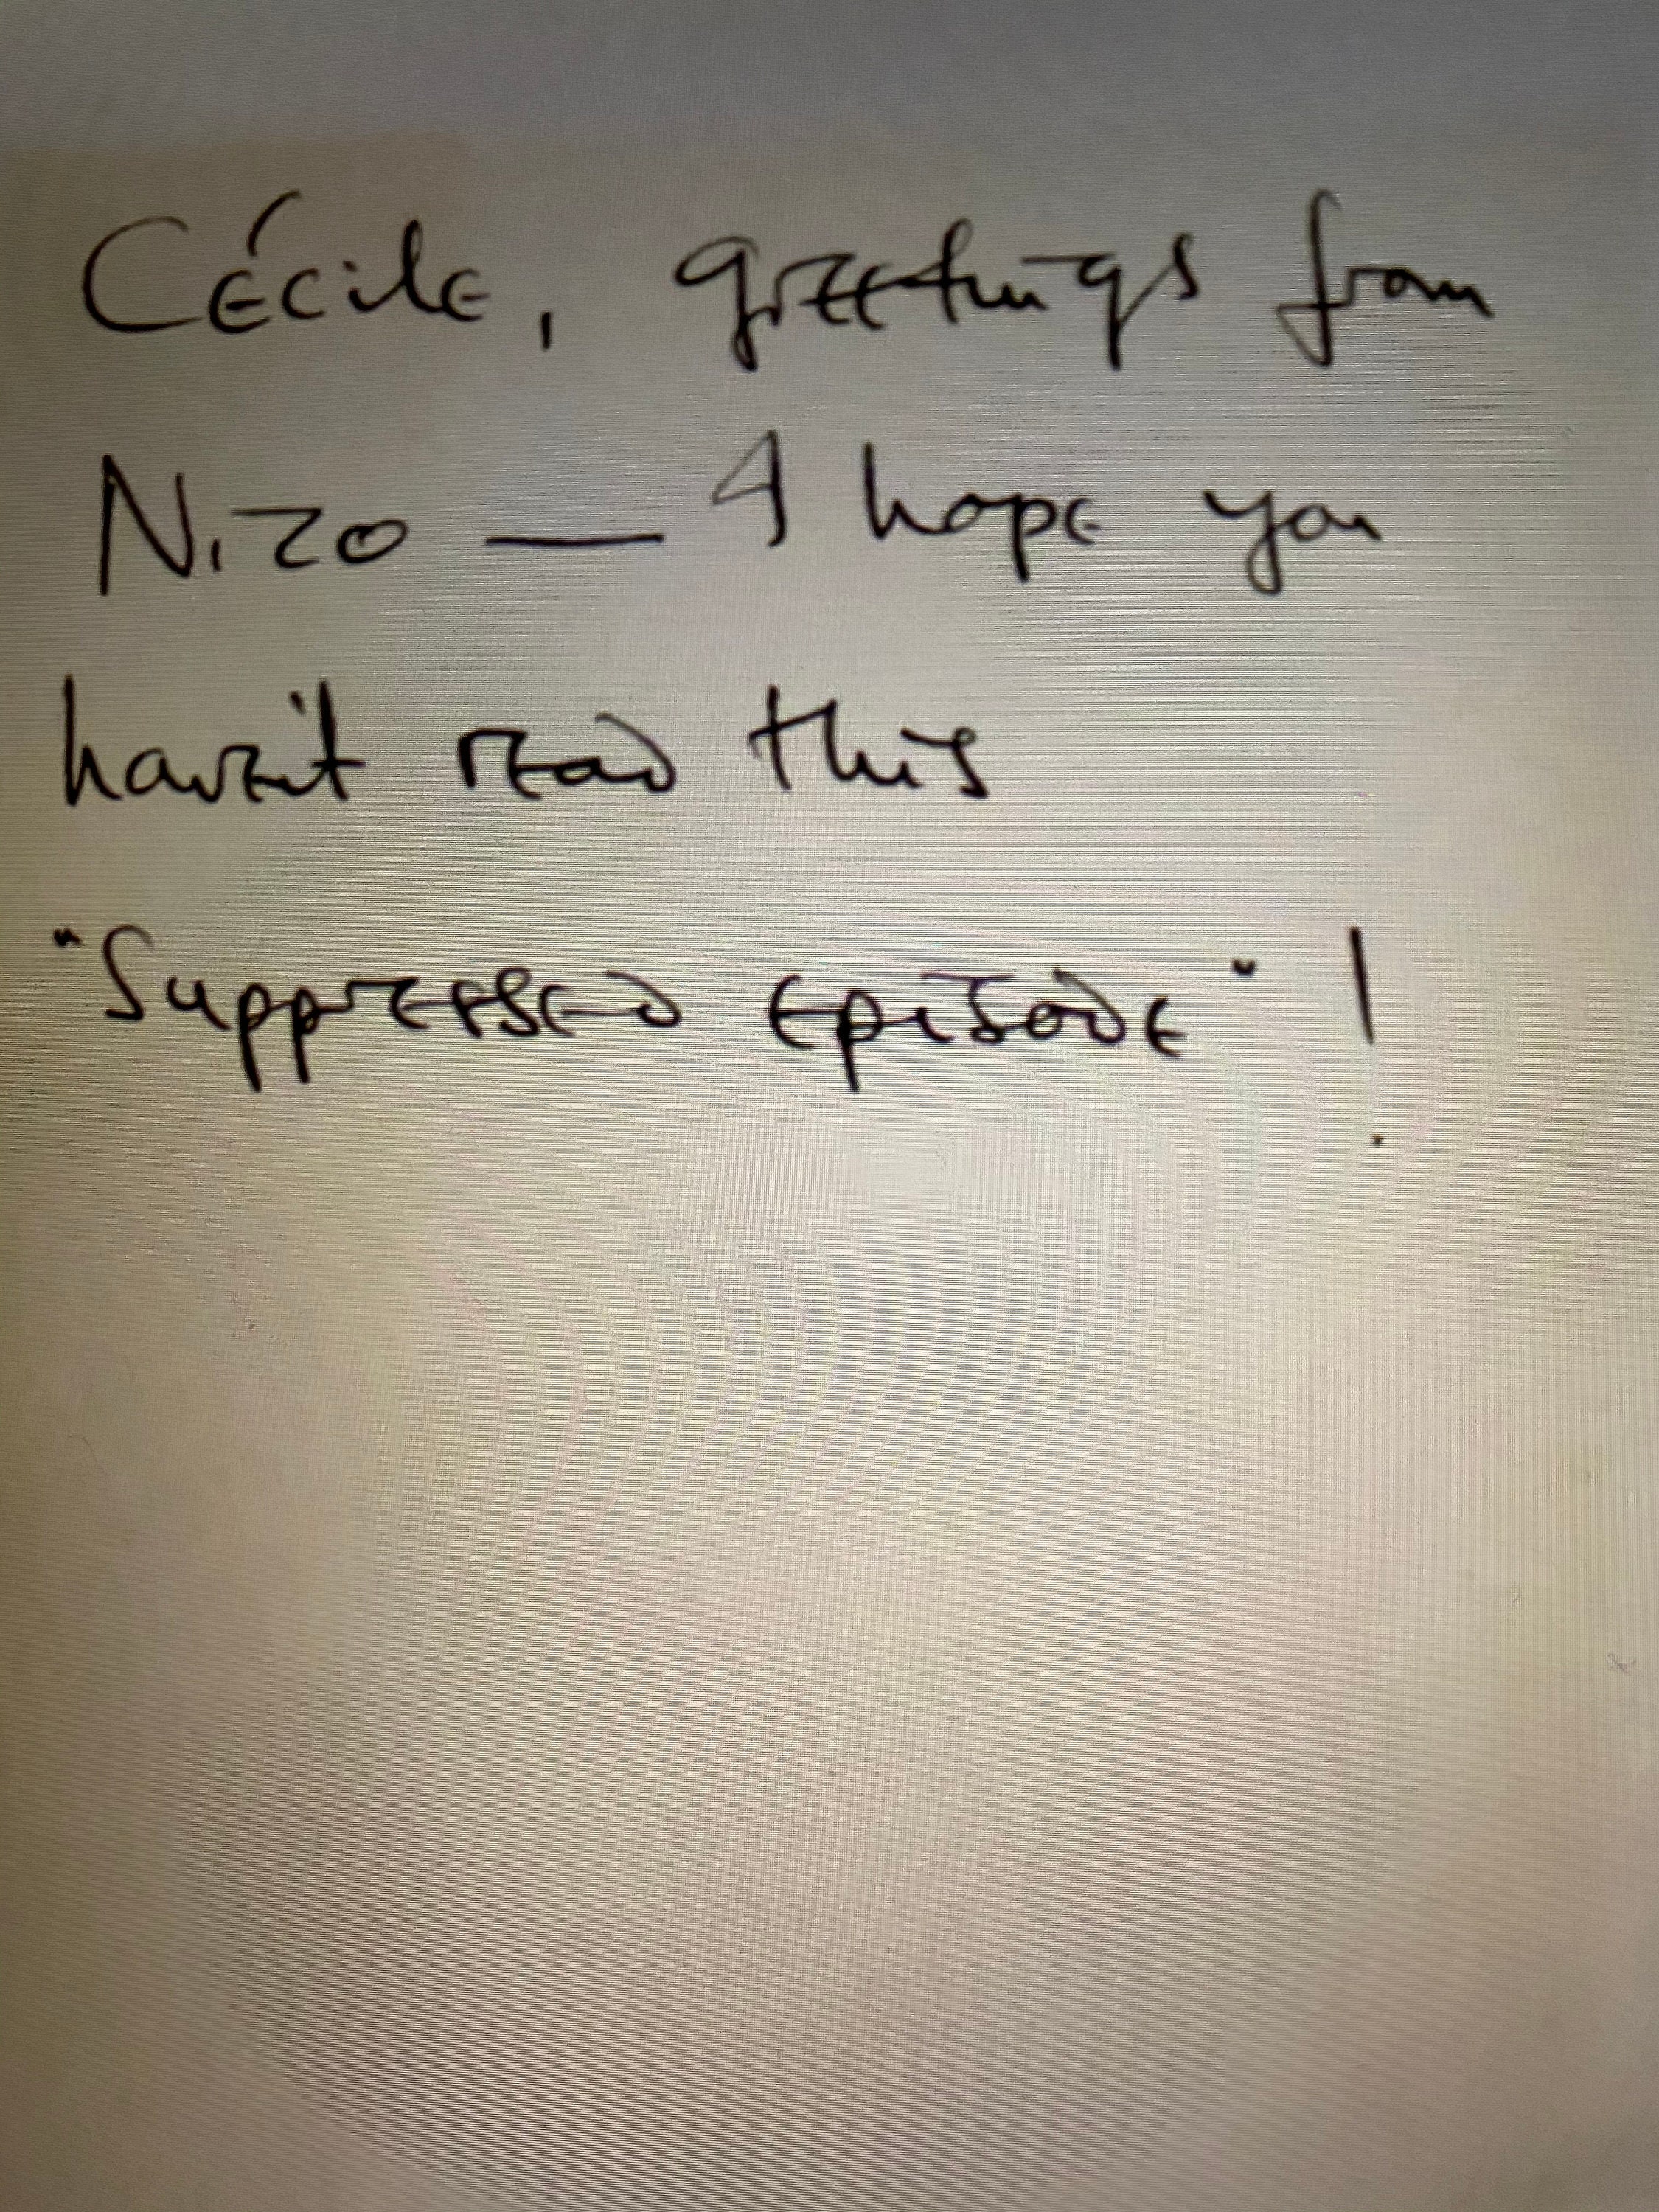 Cécile, greetings from
Nizo — I hope you
haven't read this
"Suppressed episode"!